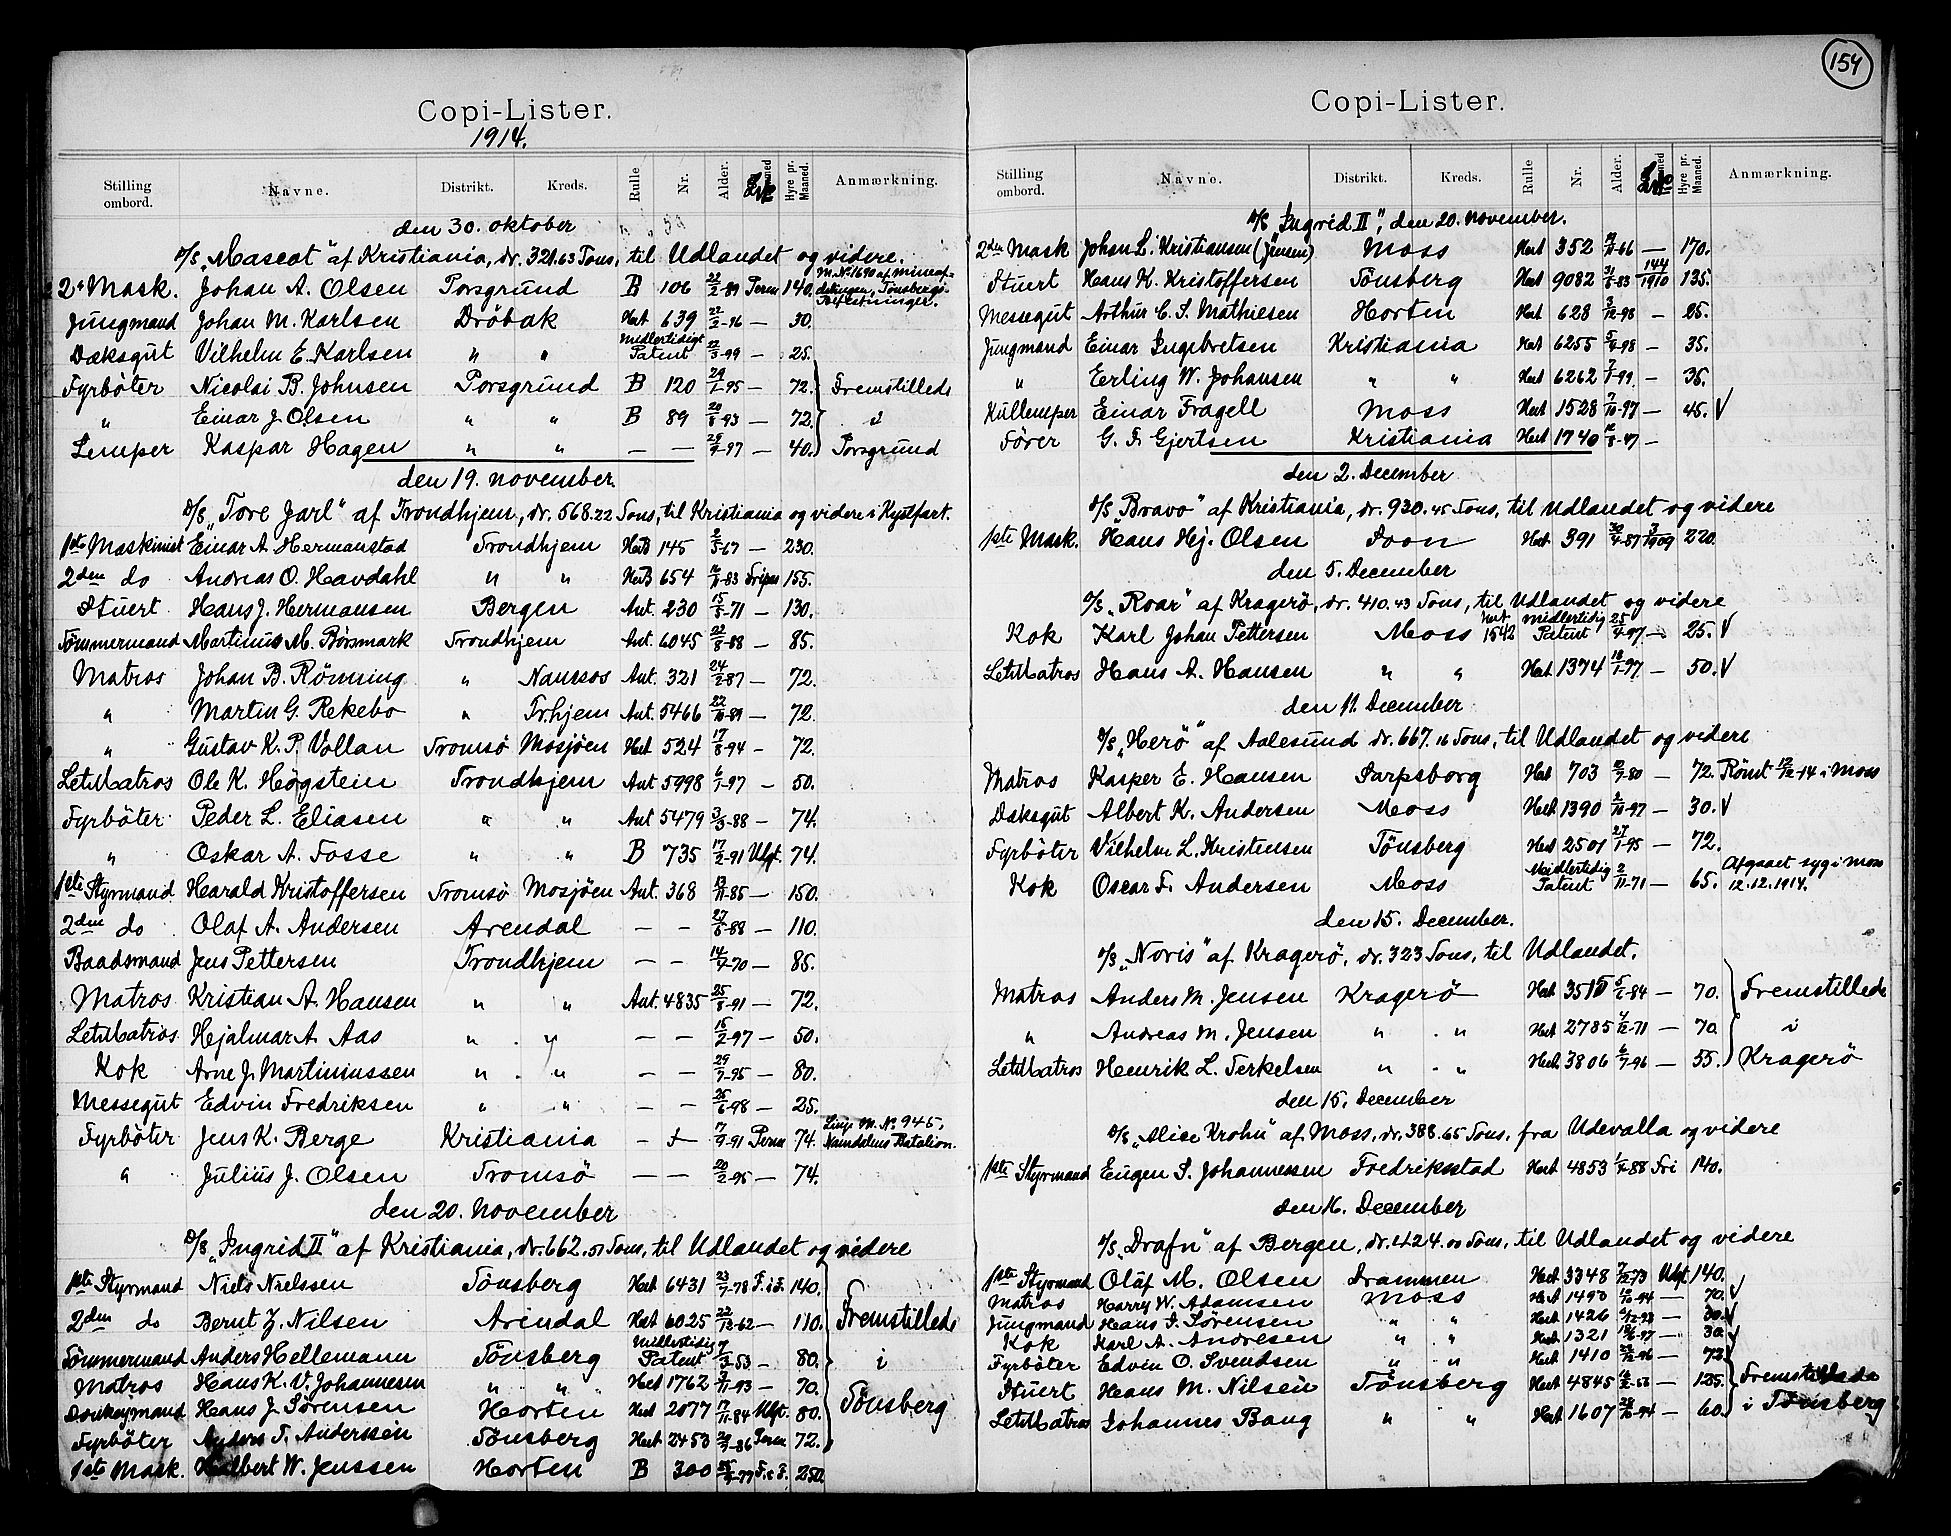 154
Copi-Lister.
1914.
Stilling ombord. Navne. Distrikt. Kreds. Rulle Nr. Alder. Hyre pr. Maaned. Anmærkning.
den 30. oktober
D/S „Mascot“ af Kristiania, dr. 321.63 Tons, til Udlandet og videre.
2. Mask. Johan A. Olsen Porsgrund B 106 22/2-89 Perm 140.
Jungmand Johan M. Karlsen Dröbak Hert 639 22/2-96 — 30.
Dæksgut Vilhelm E. Karlsen " " Midlertidigt Patent -99 — 25.
Fyrböter Nicolai B. Johnsen Porsgrund B 120 29/1-95 — 72. Fremstilled
" Einar J. Olsen " " B 89 20/8-93 — 72. i
Lemper Kaspar Hagen " " — — -97 — 40. Porsgrund
den 19. november.
D/S „Tore Jarl“ af Trondhjem, dr. 568.22 Tons, til Kristiania og videre i Kystfart.
1ste Maskinist Einar A. Hermanstad Trondhjem 145 2/5-67 — 230.
2den do Andreas O. Havdahl " " 654 -83 Fripas 155.
Stuert Hans J. Hermansen Bergen Ant. 230 15/8-71 — 130.
Tömmermand Martinus M. Börsmark Trondhjem Ant. 6045 22/8-88 — 85.
Matros Johan B. Rønning " Namsos Ant. 321 24/2-87 — 72.
" Martin G. Rekebo " Tr.hjem Ant. 5466 22/10-89 — 72.
" Gustav K. P. Vollan Tromsö Mosjöen Hert 524 17/8-94 — 72.
LetMatros Ole K. Høgstein Trondhjem Ant 5998 6/1-97 — 50.
Fyrböter Peder L. Eliasen " " Ant 5479 3/3-88 — 74.
" Oskar A. Fosse " " B 735 17/2-91 Udgt. 74.
1ste Styrmand Harald Kristoffersen Tromsö Mosjöen Ant. 368 -85 — 150.
2den do Olaf A. Andersen Arendal — — 27/6-88 — 110.
Baadsmand Jens Pettersen Trondhjem — — 14/7-70 — 85.
Matros Kristian A. Hansen " " Ant. 4835 25/8-91 — 72.
LetMatros Hejalmar A. Aas " " — — 16/2-97 — 50.
Kok Arne J. Martiniussen " " — — 29/7-95 — 80.
Messegut Edvin Fredriksen " " — — 25/6-98 — 25.
Fyrböter Jens K. Berge Kristiania — — 7/9-91 Perm 74. M. No. 945, Namdalens Batalion.
" Julius J. Olsen Tromsö — — 20/2-95 — 74.
den 20. November
D/S „Ingrid II“ af Kristiania, dr. 662.51 Tons, til Udlandet og videre
1ste Styrmand Niels Nielssen Tönsberg Hert 6431 23/7-78 F.i.F. 140.
2den do Bernt Z. Nilsen Arendal Hert 6025 22/12-62 — 110. Fremstilled
Tömmermand Anders Hellemann Tönsberg Midlertidig Patent 7/3-53 — 80. i
Matros Hans K. V. Johannesen " " Hert 1762 3/11-93 — 70.
Donkeymand Hans J. Sörensen Horten Hert 2077 17/11-84 Udgt. 80. Tönsberg
Fyrböter Anders T. Anderssen Tönsberg Hert 2453 29/3-86 Perm 72.
1ste Mask. Halbert W. Jenssen Horten B 300 -77 F.i.F. 250.
Copi-Lister.
Stilling ombord. Navne. Distrikt. Kreds. Rulle Nr. Alder. Hyre pr. Maaned. Anmærkning.
D/S „Ingrid II“, den 20. November.
2den Mask Johan L. Kristiansen (Jensen) Moss Hert 352 -66 — 170.
Stuert Hans K. Kristoffersen Tönsberg Hert 9082 -83 144/1910 135.
Messegut Arthur C. S. Mathiesen Horten Hert 628 3/12-98 — 25.
Jungmand Einar Ingebretsen Kristiania Hert 6255 -98 — 35.
" Eerling W. Johansen " " Hert 6262 -99 — 35.
Kullemper Einar Fragell Moss Hert 1528 7/10-97 — 45. V
Förer G. F. Gjertsen Kristiania Hert 1740 -47 —
den 2. December
D/S „Bravo“ af Kristiania, dr. 930.45 Tons, til Udlandet og videre
1ste Mask. Hans Hj. Olsen Soon Hert 391 -87 3/1909 220.
den 5. December
D/S „Roar“ af Kragerö, dr. 410.43 Tons, til Udlandet og videre
Kok Karl Johan Pettersen Moss Hert 1542 Midlertidig Patent 25/4-97 — 25. V
LetMatros Hans A. Hansen " " Hert 1374 18/1-97 — 50. V
den 11. December
D/S „Herö“ af Aalesund dr. 667.16 Tons, til Udlandet og videre
Matros Kasper E. Hansen Sarpsborg Hert 703 -80 — 72. Römt 12/12-14 i Moss
Dæksgut Albert K. Andersen Moss Hert 1390 2/10-97 — 30. V
Fyrböter Vilhelm L. Kristensen Tönsberg Hert 2501 27/1-95 — 72.
Kok Oscar F. Andersen Moss Midlertidig Patent 2/11-71 — 65. Afgaaet syg i Moss 12.12.1914.
den 15. December.
D/S „Noris“ af Kragerö, dr. 323 Tons, til Udlandet.
Matros Anders M. Jensen Kragerö Hert -84 — 70. Fremstilled
" Andreas M. Jensen " " Hert 2785 -71 — 70 i
LetMatros Henrik L. Terkelsen " " Hert 3806 6/7-96 — 55. Kragerö
den 15. December
D/S „Alice Krohn“ af Moss, dr. 388.65 Tons, fra Udevalla og videre
1ste Styrmand Eugen S. Johannessen Fredrikstad Hert 4853 -88 Fri 140.
den 16. December
D/S „Drafn“ af Bergen, dr. 424.00 Tons, til Udlandet og videre
1ste Styrmand Olaf M. Olsen Drammen Hert 3348 7/12-73 Udgt 140.
Matros Harry W. Adamsen Moss Hert 1493 -94 — 70. V
Jungmand Hans J. Sörensen " " Hert 1426 -98 — 30. V
Kok Karl A. Andresen " " Hert 1321 -97 — 30. V
Fyrböter Edvin O. Svendsen " " Hert 1410 -96 — 72. V
Stuert Hans M. Nilsen Tönsberg Hert 4845 — 135. Fremstillede
LetMatros Johannes Bang " " Hert 1607 -94 — 60. i Tönsberg